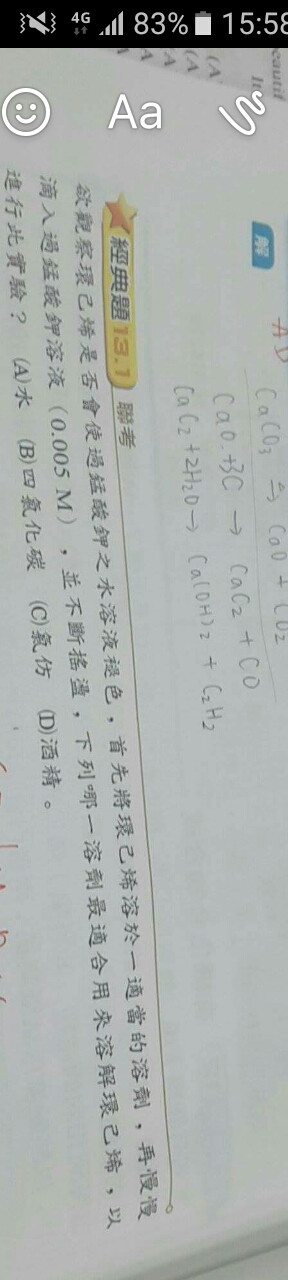 4G 83% 15:58
Aa
解
AD
CaCO₃ ⇌ CaO + CO₂
CaO + 3C → CaC₂ + CO
CaC₂ + 2H₂O → Ca(OH)₂ + C₂H₂
經典題 13.1 聯考
欲觀察環己烯是否會使過錳酸鉀之水溶液褪色，首先將環己烯溶於一適當的溶劑，再慢慢
滴入過錳酸鉀溶液（0.005 M），並不斷搖盪，下列哪一溶劑最適合用來溶解環己烯，以
進行此實驗？ (A)水 (B)四氯化碳 (C)氯仿 (D)酒精。